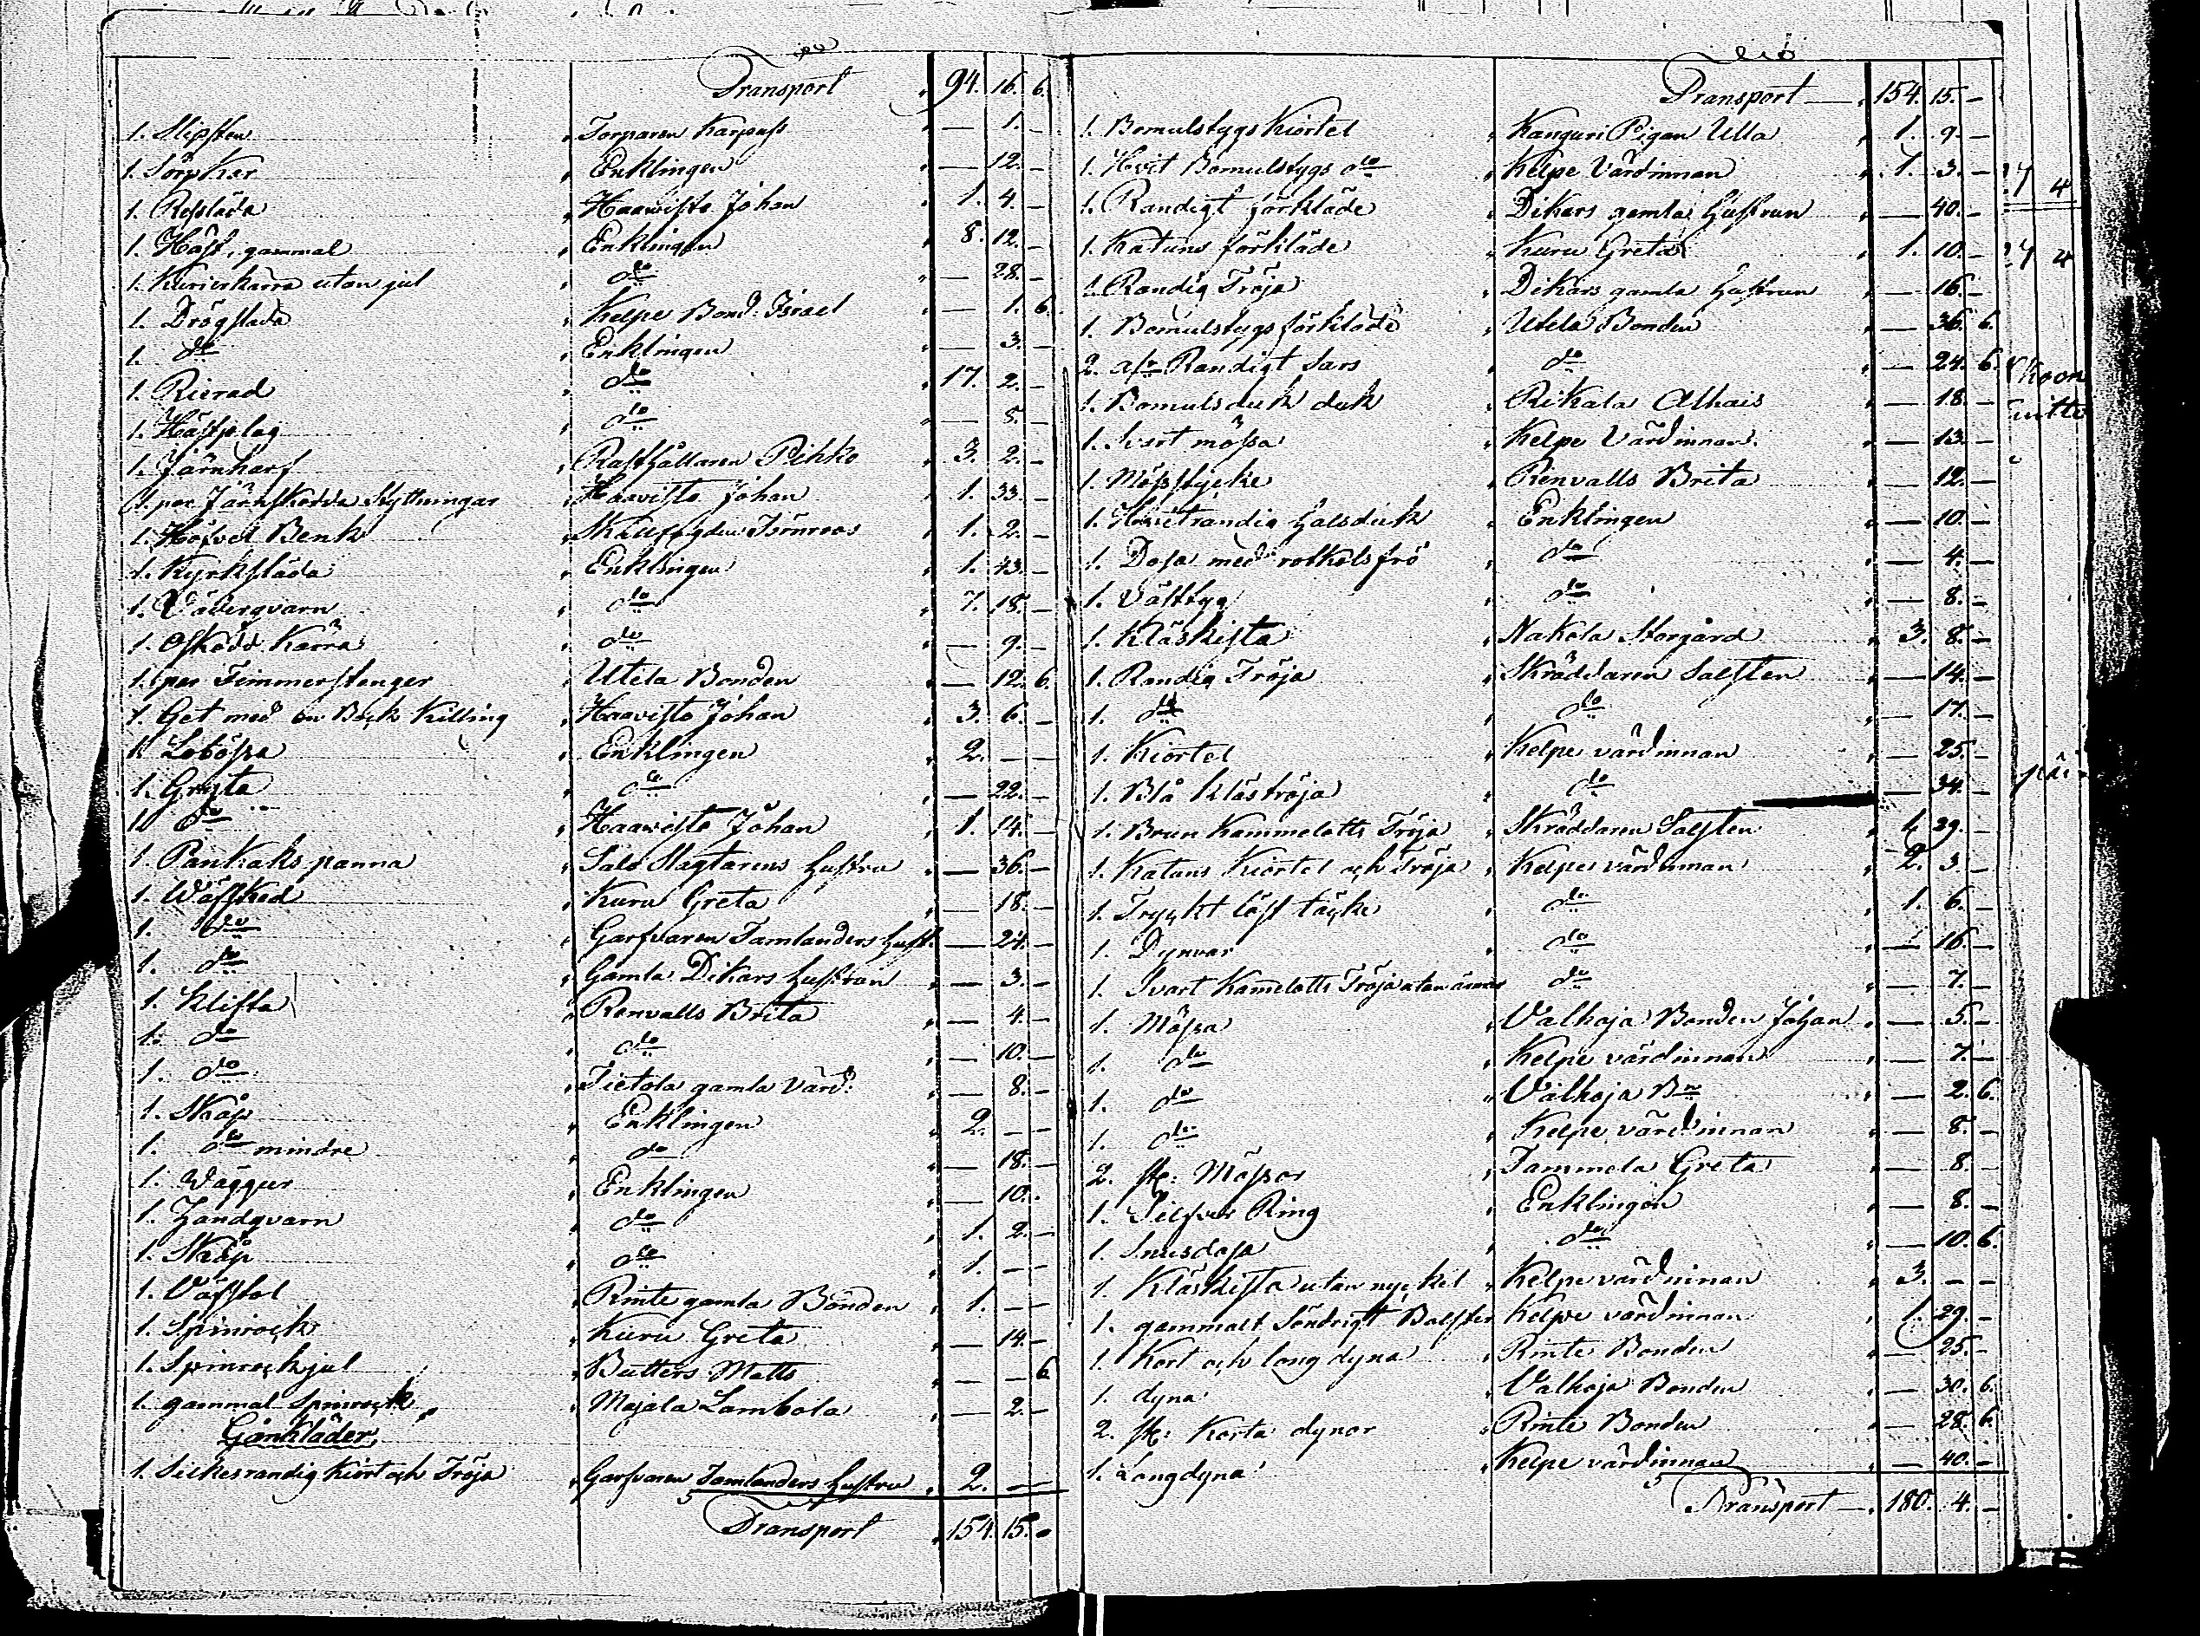 Transport 94. 16. 6.
1. Slipsten Torparen Karpass — 1. —
1. Sörpkar Enklingen — 12. —
1. Resläda Haavisto Johan 1. 4. —
1. Häst, gammal Enklingen 8. 12. —
1. Kurirkärra utan jul do — 28. —
1. Drögsläda Kelpe Bond. Israel — 1. 6.
1. do Enklingen — 3. —
1. Rierad do 17. 2. —
1. Hästplog do — 8. —
1. Järnharf Rusthållaren Pihko 3. 2. —
1. par Järnskodda Skythingar Haavisto Johan 1. 33. —
1. Höfvel Benk Törnroos 1. 2. —
1. Kyrksläda Enklingen 1. 43. —
1. Väderqvarn do 7. 18. —
1. Oskodd Kärra do — 9. —
1. par Timmerstenger Utela Bonden — 12. 6.
1. Get med en Bock Killing Haavisto Johan 3. 6. —
1. Lobössa Enklingen 2. — —
1. Gryta do — 22. —
1. do Haavisto Johan 1. 14. —
1. Pankaks panna Salo Slagtarens hustru — 36. —
1. Wäfsked Kuru Greta — 18. —
1. do Garfvaren Tamlanders hust. — 24. —
1. do Gamla Dikars hustrun — 3. —
1. Klifta Renvalls Brita — 4. —
1. do do — 10. —
1. do Tietola gamla värd. — 8. —
1. Skåp Enklingen 2. — —
1. do mindre do — 18. —
1. Waggur Enklingen — 10. —
1. Handqvarn do 1. 2. —
1. Skåp do 1. — —
1. Väfstol Rinte gamla Bonden 1. — —
1. Spinrock Kuru Greta — 14. —
1. Spinrockjul Butters Matts — — 6
1. gammal Spinrock Majala Lambola — 2. —
Gånkläder
1. Silkesrandig Kiort och Tröja Garfvaren Tamlanders hustru 2. — —
Transport 154. 15. —
Transport — 154. 15. —
1. Bomulstygs Kiortel Kanguri Pigan Ulla 1. 9. —
1. Hvit Bomulstygs do Kelpe Värdinnan 1. 3. —
1. Randigt förkläde Dikars gamla hustrun — 40. —
1. Katuns förkläde Kuru Greta 1. 10. —
1. Randig Tröja Dikars gamla hustrun — 16. —
1. Bomulstygs förkläde Utela Bonden — 36. 6.
2. Randigt Sars do — 24. 6.
1. Bomulsduk duk Rikala Alhais — 18. —
1. Svart mössa Kelpe Värdinnan — 13. —
1. Mösstycke Renvalls Brita — 12. —
1. Hvitrandig halsduk Enklingen — 10. —
1. Dosa med rotkålsfrö do — 4. —
1. Vålttyg do — 8. —
1. Kläskista Nakola Storgård 3. 8. —
1. Randig Tröja Skräddaren Salsten — 14. —
1. do do — 17. —
1. Kiortel Kelpe värdinnan — 25. —
1. Blå Kläströja do — 34. —
1. Brun Kammelotts Tröja Skräddaren Salsten 1. 29. —
1. Katuns Kiortel och Tröja Kelpe värdinnan 2. 3. —
1. Tryckt läst täcke do 1. 6. —
1. Dynvar do — 16. —
1. Svart Kamelotts Tröja utan ärmar do — 7. —
1. Mössa Valhoja Bonden Johan — 5. —
1. do Kelpe värdinnan — 7. —
1. do Valhoja Bn — 2. 6.
1. do Kelpe värdinnan — 8. —
2. st: Mössor Tammela Greta — 8. —
1. Silfver Ring Enklingen — 8. —
1. Snusdosa do — 10. 6.
1. Kläskista utan nyckel Kelpe värdinnan 3. — —
1. gammalt Söndrigt Bolster Kelpe värdinnan 1. 29. —
1. Kort och long dyna Rinte Bonden — 25. —
1. dyna Valhoja Bonden — 30. 6.
2. st: Korta dynor Rinte Bonden — 28. 6.
1. Longdyna Kelpe värdinnan — 40. —
Transport — 180. 4. —